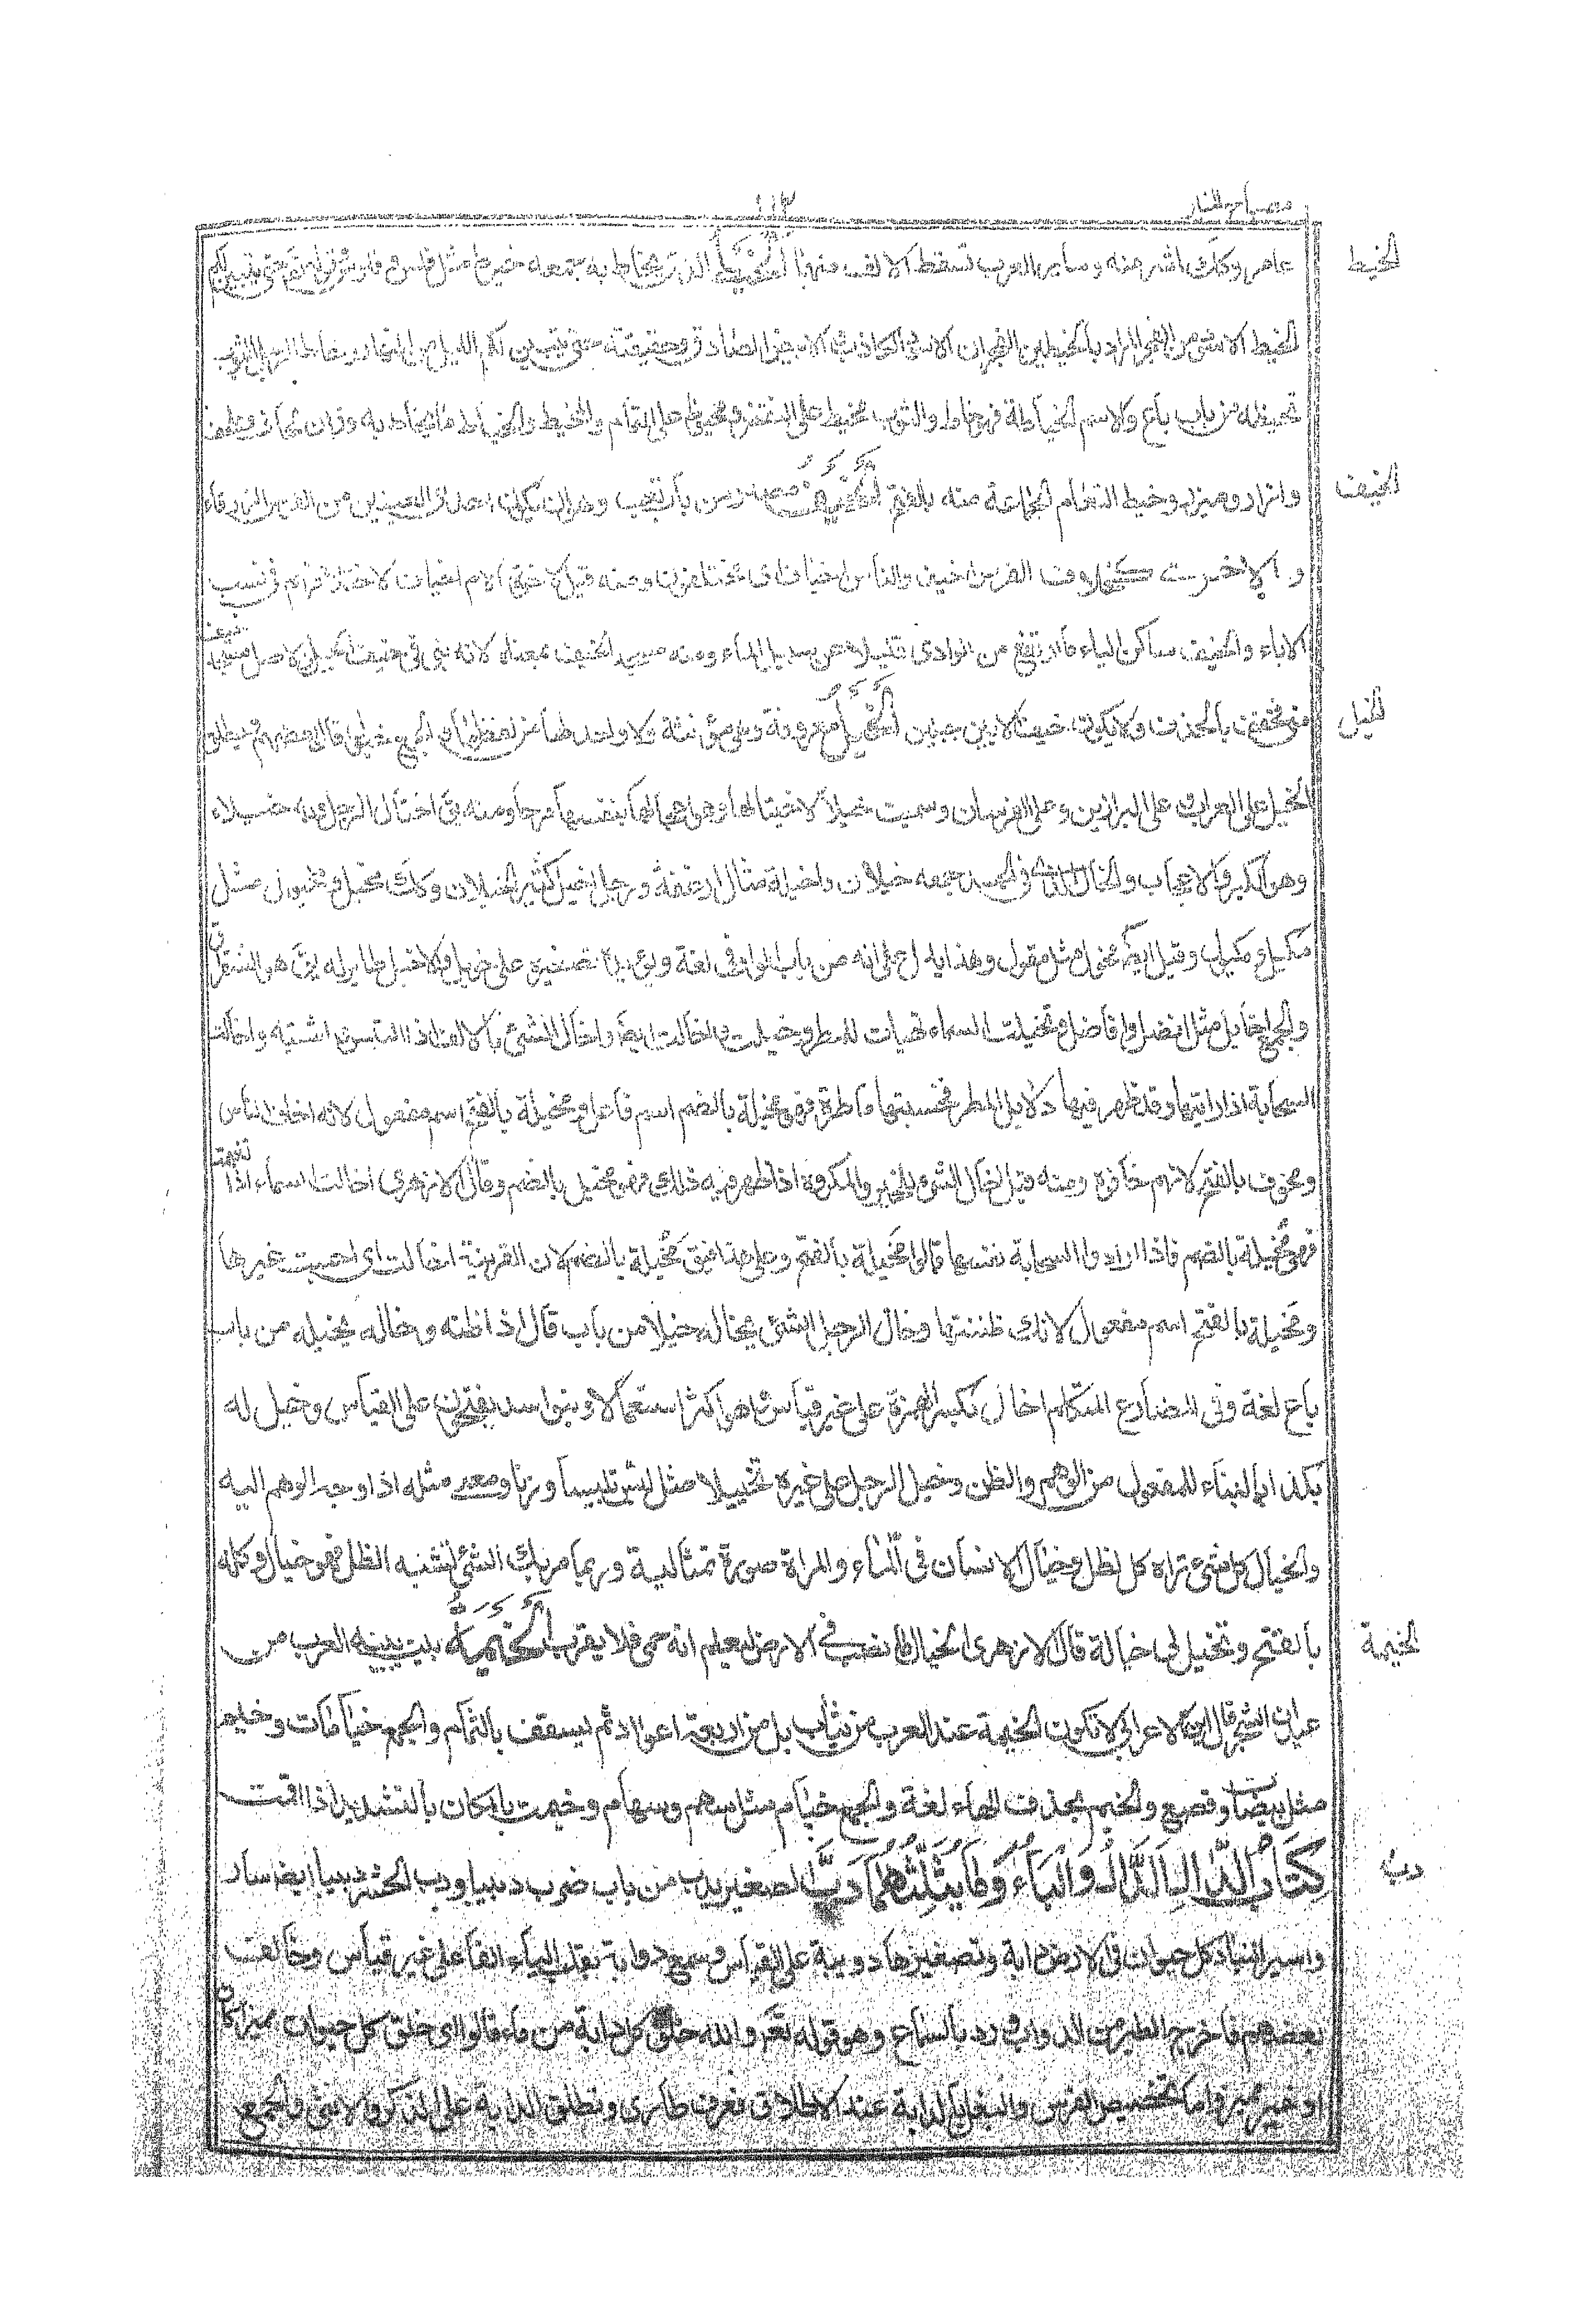 مصباح المنار
١١٣
الخيط
عامر وكلك اشر منه وساير العرب تسقط الالف منها الخيط الذي يخاط به جمعه خيوط مثل فلس وفلوس وقوله تع حتى يتبين لكم
الخيط الابيض من الفجر المراد بالخيطين الفجران الابيض الصادق وحقيقته حتى يتبين لكم الليل من النهار وخاط الرجل الثوب
يخيطه من باب باع والاسم الخياطة فهو خاط والثوب مخيط على النقص ومخيوط على التمام والمخيط والخياط ما يخاط به وزان لحاف وملحف
الخيف
وازار وميزر وخيط النعام الجماعة منه بالفتح الخيف مصدر من باب تعب وهو ان يكون احدى العينين من الفرس زرقاء
والاخرى كحلاء فالفرس اخيف والناس اخياف اي مختلفون ومنه قيل لاخوة الام اخياف لاختلافهم في نسب
الاباء والخيف ساكن الياء ما ارتفع من الوادي قليلا عن مسيل الماء ومنه مسجد الخيف بمعناه لانه بني في خيف الجبل والاصل مسجد خيف
الخيل
منى فخفف بالحذف ولا يكون خيف الا بين جبلين الخيل معروفة وهي مؤنثة ولا واحد لها من لفظها والجمع خيول قال بعضهم وتطلق
الخيل على العراب وعلى البراذين وعلى الفرسان وسميت خيلا لاختيالها وهو اعجابها بنفسها مرحا ومنه يق اختال الرجل وبه خيلاء
وهو الكبر والاعجاب والخال الذي في الجسد جمعه خيلان واخيلة مثال ارغفة ورجل اخيل كثير الخيلان وكك مخيل ومخيول مثل
مكيل ومكيول وقيل ايضا مخول مثل مقول وهذا يدل على انه من باب الواو في لغة ويؤيده تصغيره على خويل والاخيل طاير له يق هو الشقراق
والجمع اخايل مثل افضل وافاضل وتخيلت السماء تهيات للمطر وخيلت واخالت ايضا واخال الشئ بالالف اذا التبس واشتبه واخالت
السحابة اذا رايتها وقد ظهر فيها دلايل المطر فحسبتها ماطرة فهي مخيلة بالضم اسم فاعل ومخيلة بالفتح اسم مفعول لانه اخاف الناس
ومخوف بالفتح لانهم خافوه ومنه قيل اخال الشئ للخير والمكروه اذا ظهر فيه ذلك فهو مخيل بالضم وقال الازهري اخالت السماء اذا تغيمت
فهي مخيلة بالضم فاذا ارادوا السحابة نفسها قالوا مخيلة بالفتح وعلى هذا فيق مخيلة بالضم لان القرينة اخالت اي احسبت غيرها
ومخيلة بالفتح اسم مفعول لانك ظننتها وخال الرجل الشئ يخاله خيلا من باب قال اذا ظنه وخاله يخيله من باب
باع لغة وفي المضارع المتكلم اخال بكسر الهمزة على غير قياس وهو اكثر استعمالا وبنو اسد يفتحون على القياس وخيل له
بكذا بالبناء للمفعول من الوهم والظن وخيل الرجل على غيره تخييلا مثل لبس تلبيسا وزنا ومعنى مثله اذا وجه الوهم اليه
والخيال كل شئ تراه كل لظل وخيال الانسان في الماء والمراة صورة تمثاله وربما مر بك الشئ تشبه الظل فهو خيال وكله
الخيمة
بالفتح وتخيل لي خيالة قال الازهري الخيال ما نصب في الارض ليعلم انه حمى فلا يقرب الخيمة بيت يبنيه العرب من
عيدان الشجر قال ابن الاعرابي لا تكون الخيمة عند العرب من ثياب بل من اربعة اعواد ثم يسقف بالثمام والجمع خيامات وخيم
مثل بيضات وقصع والخيم بحذف الهاء لغة والجمع خيام مثل سهم وسهام وخيمت بالمكان بالتشديد اذا اقمت
دب
كتاب الدال الدال والباء وما يثلثهما دب الصغير يدب من باب ضرب دبيبا ودب الجيش دبيبا ايضا سار
واسير لينا وكل حيوان في الارض دابة وتصغيرها دويبة على القياس وسمع دوابة بقلب الياء الفا على غير قياس وخالف
بعضهم فاخرج الطير من الدواب ورد بالسماع وهو قوله تع والله خلق كل دابة من ماء قالوا اي خلق كل حيوان مميزا كان
او غير مميز واما تخصيص الفرس والبغل بالدابة عند الاطلاق فعرف طارئ وتطلق الدابة على الذكر والانثى والجمع